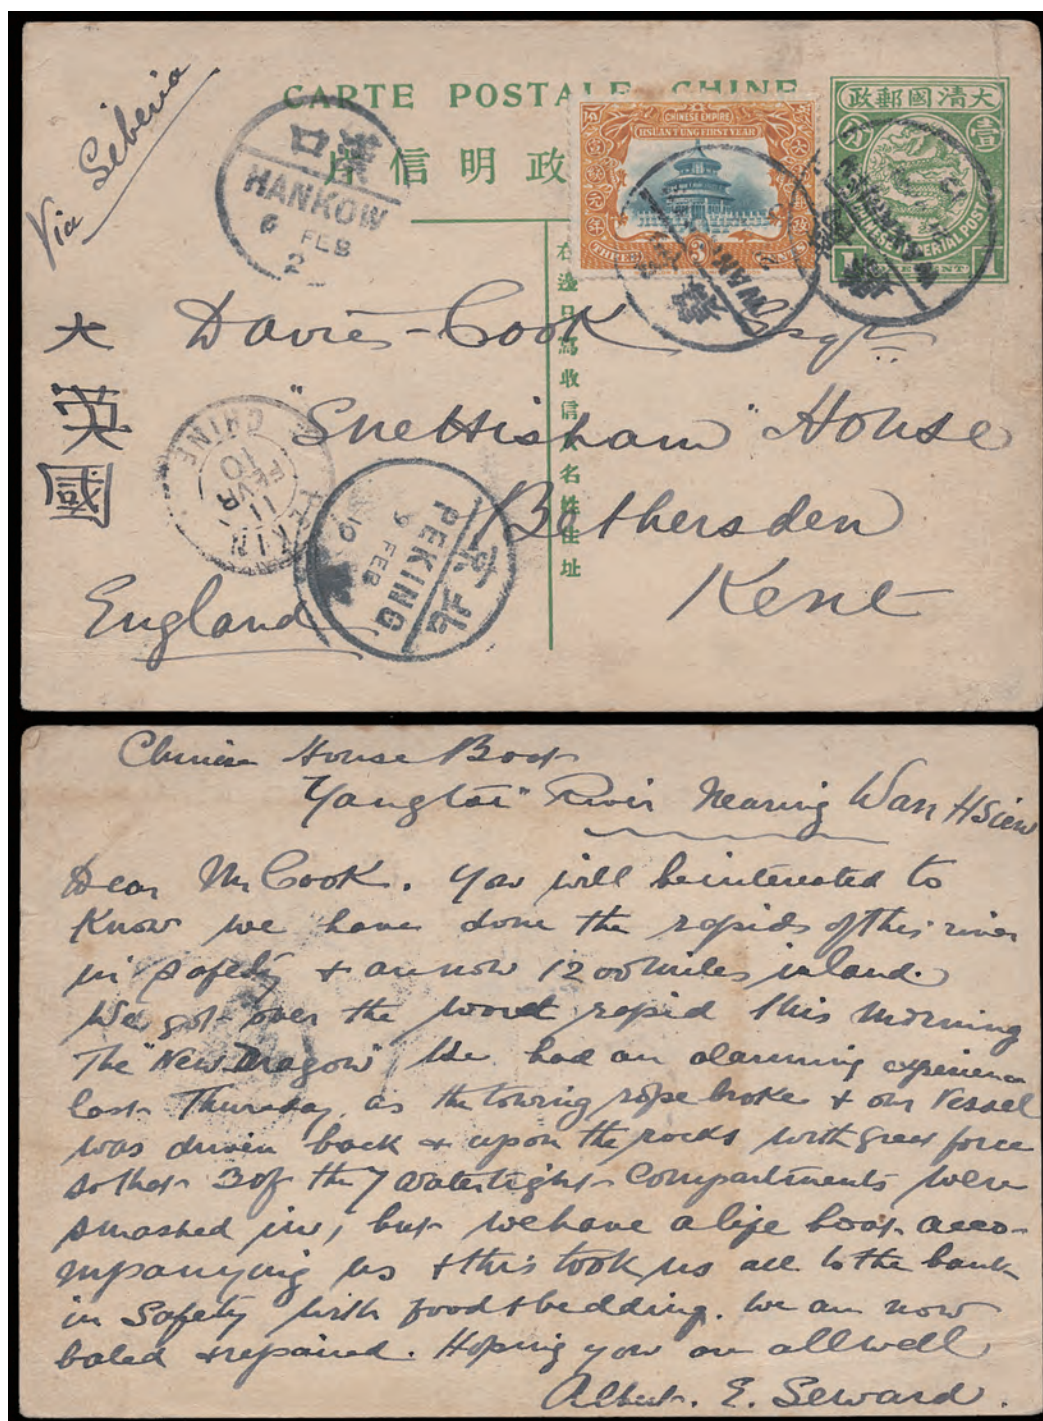 Via Siberia
CARTE POSTALE CHINE
片信明政
政郵國清大
分 壹
CHINESE IMPERIAL POST
1 CENT
CHINESE EMPIRE
HSUAN TUNG FIRST YEAR
THREE 3 CENTS
漢口
HANKOW
6 FEB
2
WAN
在邊只寫收信人名姓住址
Davies-Cook Esqre
"Snettisham" House
Bethersden
Kent
大英國
England
PEKIN
CHINE
11
FEVR
10
北京
PEKING
9 FEB
10
Chinese House Boat
Yangtsi River Nearing Wan Hsien
Dear Mr Cook. You will be interested to
Know we have done the rapids of this river
in safety & are now 1200 miles inland.
We got over the worst rapid this morning
The "New Dragon" We had an alarming experience
last Thursday, as the towing rope broke & our Vessel
was driven back & upon the rocks with great force
so that 3 of the 7 watertight compartments were
smashed in, but we have a life boat acco-
mpanying us & this took us all to the bank
in Safety with food & bedding. We are now
baled & repaired. Hoping you are all well
Albert. E. Seward.